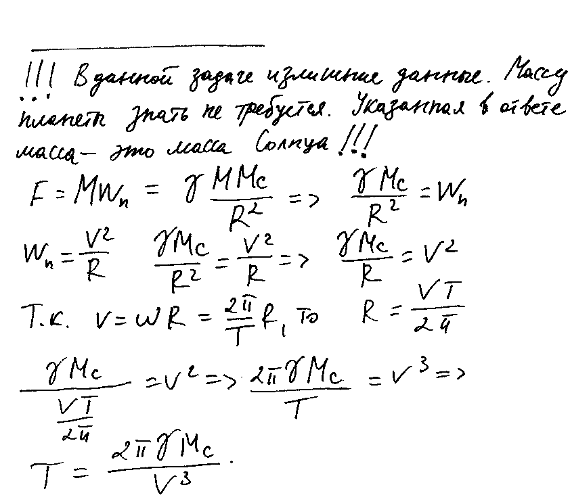 !!! В данной задаче излишние данные. Массу
планеты знать не требуется. Указанная в ответе
масса – это масса Солнца!!!
F = MWₙ = γ MMc/R² => γMc/R² = Wₙ
Wₙ = V²/R γMc/R² = V²/R => γMc/R = V²
Т.к. V = ωR = 2π/T R, то R = VT/2π
γMc/(VT/2π) = V² => 2πγMc/T = V³ =>
T = 2πγMc/V³.